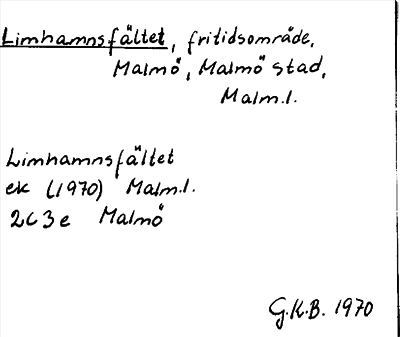 Limhamnsfältet, fritidsområde,
Malmö, Malmö stad,
Malm.l.
Limhamnsfältet
ek (1970) Malm.l.
2C3e Malmö
G.K.B. 1970